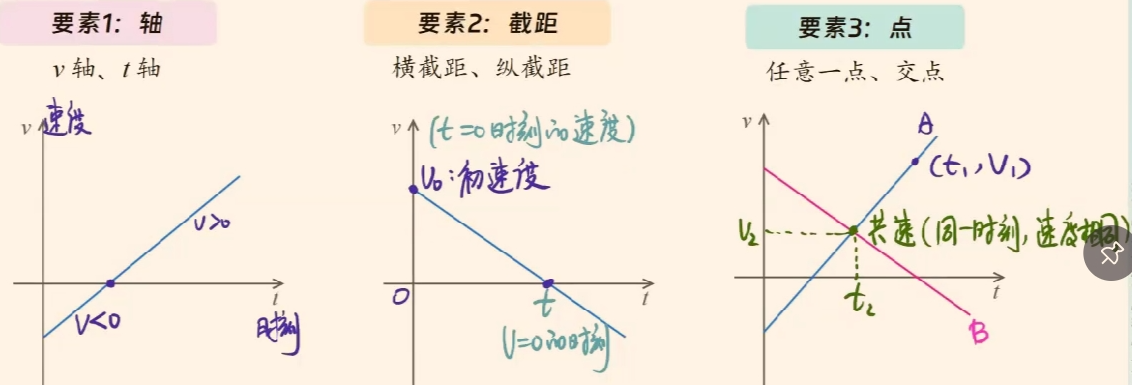 要素1：轴
v 轴、t 轴
v
速度
v>0
V<0
t
时刻
要素2：截距
横截距、纵截距
v
(t=0时刻的速度)
V₀:初速度
O
t
t
V=0的时刻
要素3：点
任意一点、交点
v
A
(t₁,V₁)
V₂
共速(同一时刻,速度相同)
t₂
t
B